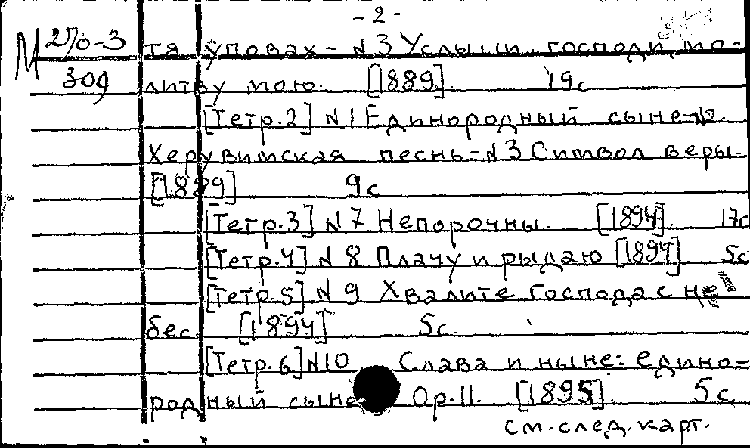 - 2 -
М 270-3 тя уповах - N 3 Услыши, господи, мо-
309 литву мою. [1889]. 19с
[Тетр.2] N 1 Единородный сыне - N2
Херувимская песнь - N 3 Символ веры
[1889] 9с
[Тетр.3] N 7 Непорочны. [1894]. 17с
[Тетр.4] N 8 Плачу и рыдаю [1894] 5с
[Тетр.5] N 9 Хвалите Господа с не
бес [1894] 5с
[Тетр.6] N10 Слава и ныне: едино-
родный сыне Ор.11. [1895] 5с
см. след. карт.